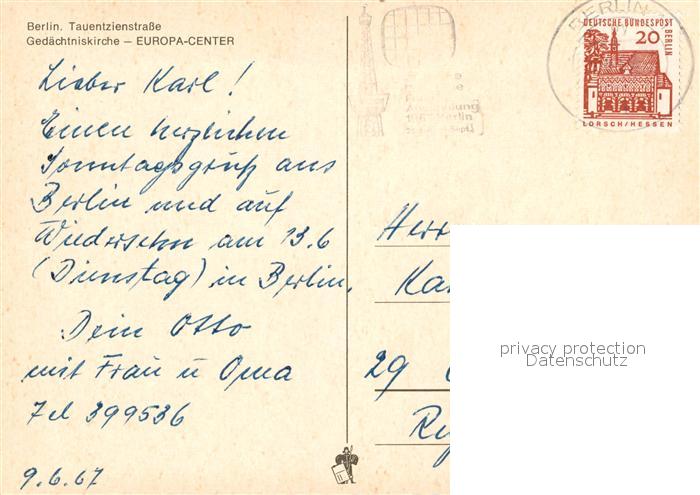 Berlin. Tauentzienstraße
Gedächtniskirche – EUROPA-CENTER
Lieber Karl!
Einen herzlichen
Sonntagsgruß aus
Berlin und auf
Wiedersehn am 13.6
(Dienstag) in Berlin.
Dein Otto
mit Frau u Oma
Tel 399536
9.6.67
BERLIN
DEUTSCHE BUNDESPOST
BERLIN
20
LORSCH/HESSEN
Berlin
Sept.
Herr
Ka
29
privacy protection
Datenschutz